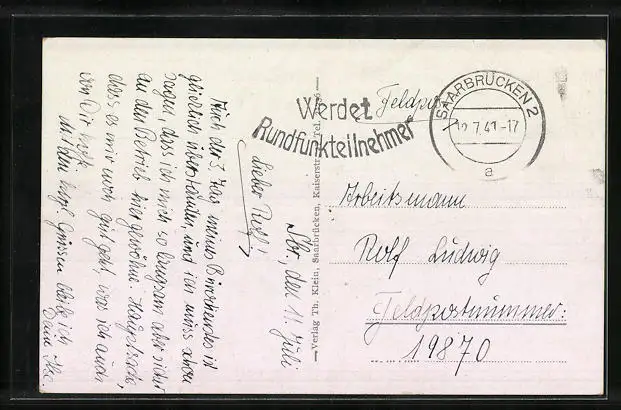 Sbr., den 11. Juli
Lieber Rolf!
Auch der 3. Tag meines Bürostudes ist
glücklich überstanden, und ich muss schon
sagen, dass ich mich so langsam aber sicher
an den Betrieb hier gewöhne. Hauptsache,
dass es mir noch gut geht, was ich auch
von Dir hoffe.
Mit den Grüssen bleibe ich
Dein
Verlag Th. Klein, Saarbrücken, Kaiserstr.
Werdet
Rundfunkteilnehmer
Feldpost
SAARBRÜCKEN 2
12.7.41-17
a
Arbeitsmann
Rolf Ludwig
Feldpostnummer:
19870